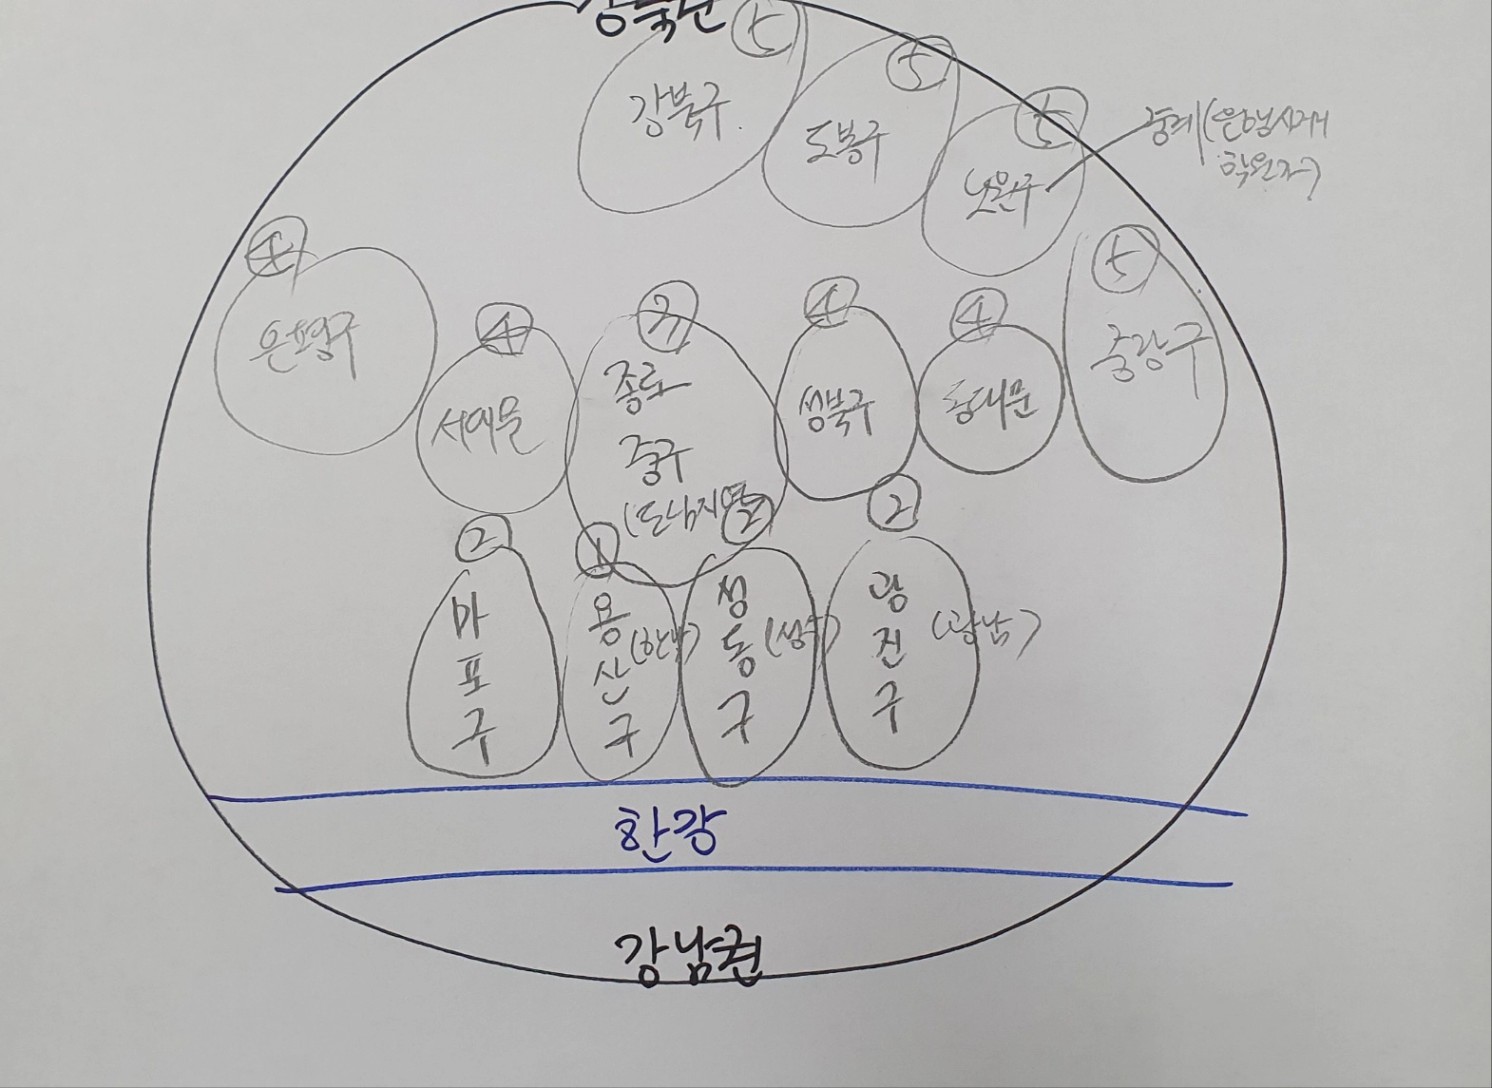 강북권
5
강북구
5
도봉구
5
노원구
중계(은행사거리
학원가)
4
은평구
4
서대문
3
종로
중구
(도심지역)
4
성북구
4
동대문
5
중랑구
2
마
포
구
1
용
산
구
(한남)
2
성
동
구
(성수)
2
광
진
구
(광남)
한강
강남권